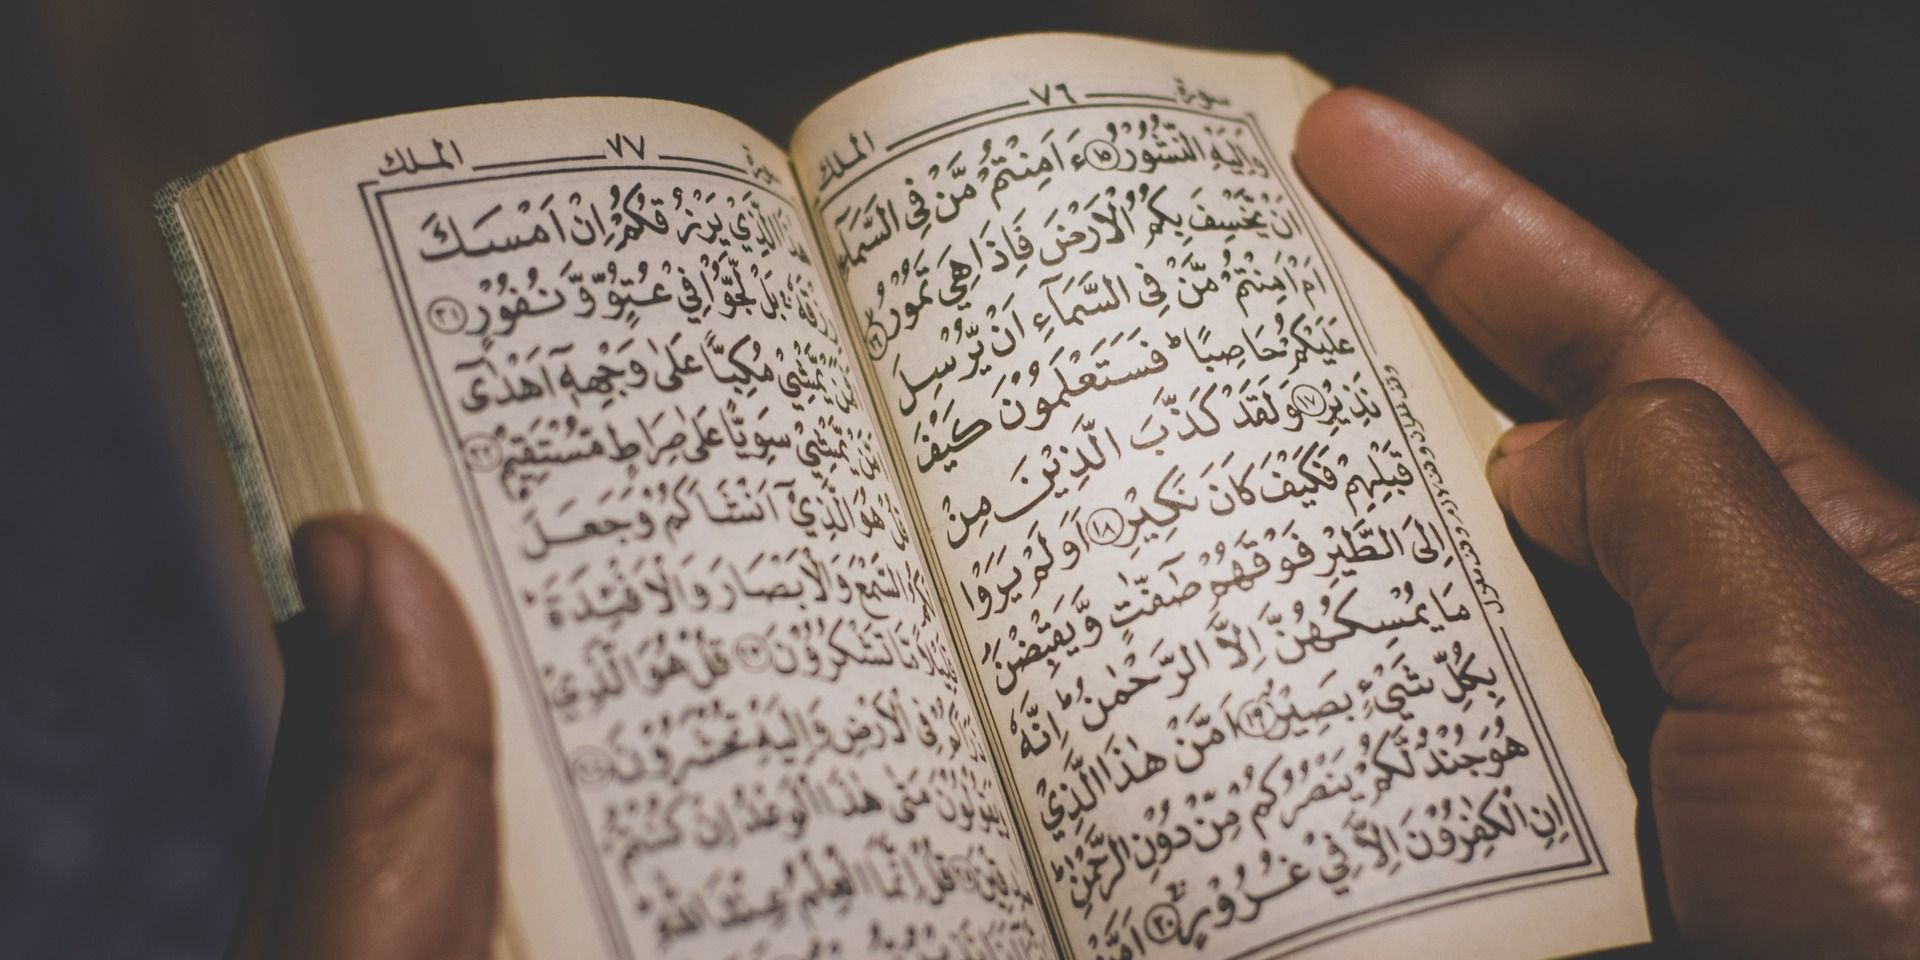 سورة ٧٦ الملك
وَاِلَيْهِ النُّشُوْرُ ۝١٥ ءَاَمِنْتُمْ مَّنْ فِى السَّمَآءِ
اَنْ يَّخْسِفَ بِكُمُ الْاَرْضَ فَاِذَا هِيَ تَمُوْرُ ۝١٦
اَمْ اَمِنْتُمْ مَّنْ فِى السَّمَآءِ اَنْ يُّرْسِلَ
عَلَيْكُمْ حَاصِبًا ؕ فَسَتَعْلَمُوْنَ كَيْفَ
نَذِيْرِ ۝١٧ وَلَقَدْ كَذَّبَ الَّذِيْنَ مِنْ
قَبْلِهِمْ فَكَيْفَ كَانَ نَكِيْرِ ۝١٨ اَوَلَمْ يَرَوْا
اِلَى الطَّيْرِ فَوْقَهُمْ صٰٓفّٰتٍ وَّيَقْبِضْنَ
مَا يُمْسِكُهُنَّ اِلَّا الرَّحْمٰنُ ؕ اِنَّهٗ
بِكُلِّ شَيْءٍۭ بَصِيْرٌ ۝١٩ اَمَّنْ هٰذَا الَّذِيْ
هُوَ جُنْدٌ لَّكُمْ يَنْصُرُكُمْ مِّنْ دُوْنِ الرَّحْمٰنِ ؕ
اِنِ الْكٰفِرُوْنَ اِلَّا فِيْ غُرُوْرٍ ۝٢٠ اَمَّنْ
سورة ٧٧ الملك
هٰذَا الَّذِيْ يَرْزُقُكُمْ اِنْ اَمْسَكَ
رِزْقَهٗ ۚ بَلْ لَّجُّوْا فِيْ عُتُوٍّ وَّنُفُوْرٍ ۝٢١
يَّمْشِيْ مُكِبًّا عَلٰى وَجْهِهٖٓ اَهْدٰٓى
يَّمْشِيْ سَوِيًّا عَلٰى صِرَاطٍ مُّسْتَقِيْمٍ ۝٢٢
قُلْ هُوَ الَّذِيْٓ اَنْشَاَكُمْ وَجَعَلَ
لَكُمُ السَّمْعَ وَالْاَبْصَارَ وَالْاَفْـِٕدَةَ ؕ
قَلِيْلًا مَّا تَشْكُرُوْنَ ۝٢٣ قُلْ هُوَ الَّذِيْ
فِى الْاَرْضِ وَاِلَيْهِ تُحْشَرُوْنَ ۝٢٤
وَيَقُوْلُوْنَ مَتٰى هٰذَا الْوَعْدُ اِنْ كُنْتُمْ
قُلْ اِنَّمَا الْعِلْمُ عِنْدَ اللّٰهِ